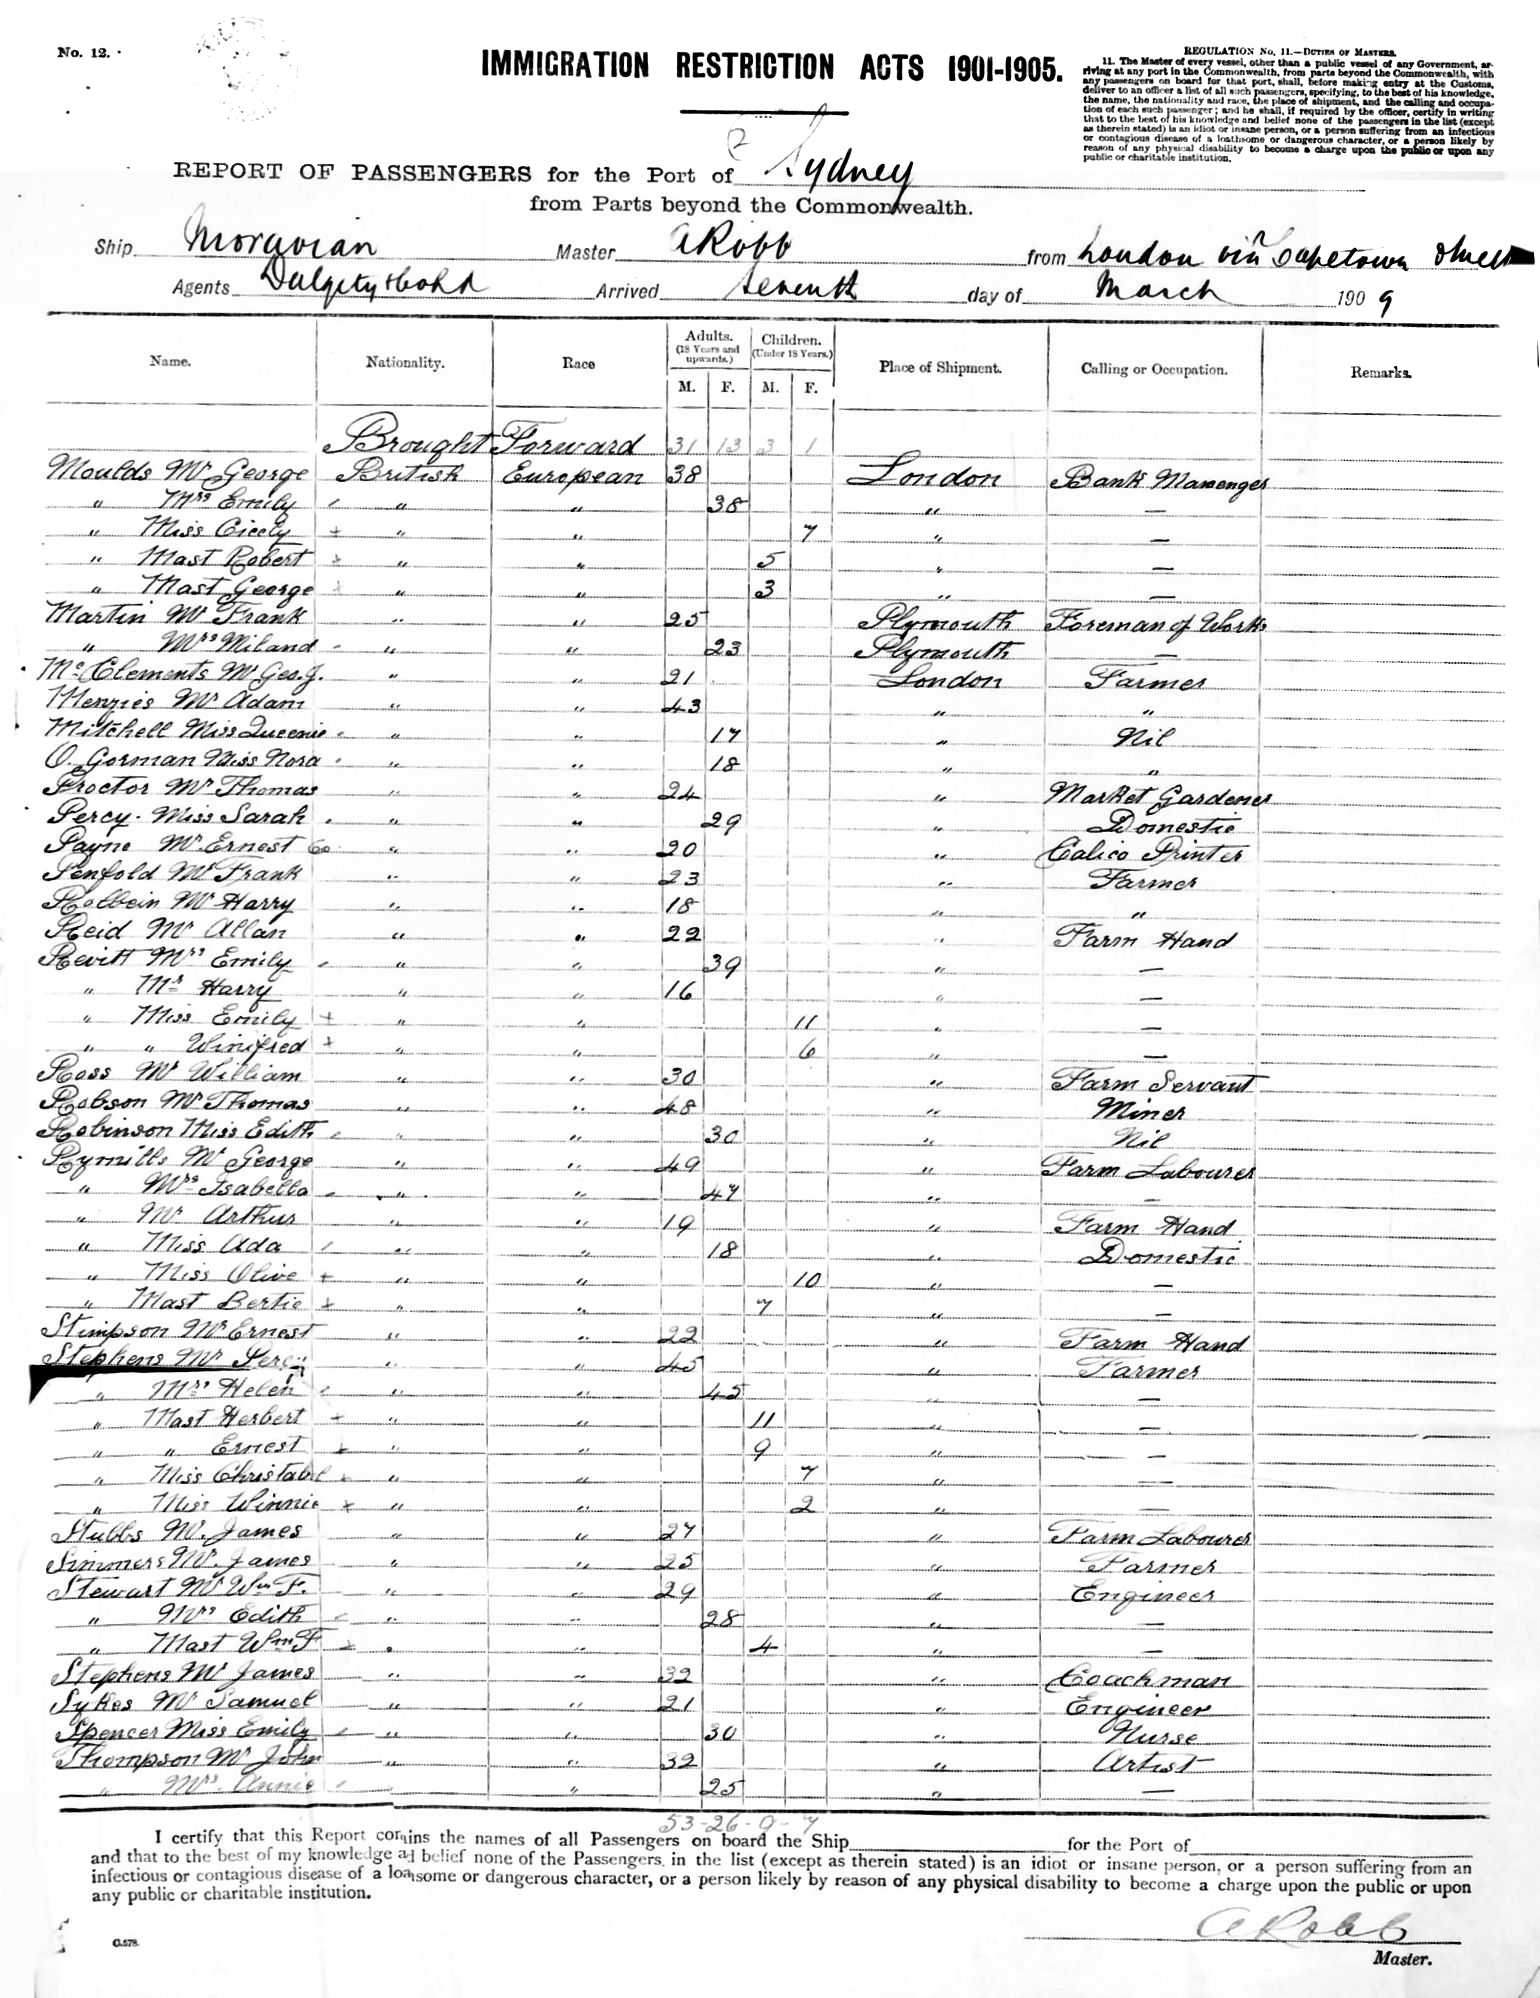 No. 12.
IMMIGRATION RESTRICTION ACTS 1901-1905.
REGULATION No. 11.—DUTIES OF MASTERS.
11. The Master of every vessel, other than a public vessel of any Government, ar-
riving at any port in the Commonwealth, from parts beyond the Commonwealth, with
any passengers on board for that port, shall, before making entry at the Customs,
deliver to an officer a list of all such passengers, specifying, to the best of his knowledge,
the name, the nationality and race, the place of shipment, and the calling and occupa-
tion of each such passenger; and he shall, if required by the officer, certify in writing
that to the best of his knowledge and belief none of the passengers in the list (except
as therein stated) is an idiot or insane person, or a person suffering from an infectious
or contagious disease of a loathsome or dangerous character, or a person likely by
reason of any physical disability to become a charge upon the public or upon any
public or charitable institution.
REPORT OF PASSENGERS for the Port of Sydney
from Parts beyond the Commonwealth.
Ship Moravian Master A Robb from London via Capetown
Agents Dalgety & Co Ld Arrived Seventh day of March 1909
Name. Nationality. Race Adults. (18 Years and upwards.) M. F. Children. (Under 18 Years.) M. F. Place of Shipment. Calling or Occupation. Remarks.
Brought Forward 31 13 3 1
Moulds Mr George British European 38 London Bank Messenger
" Mrs Emily " " 38 " —
" Miss Cicely + " " 7 " —
" Mast Robert + " " 5 " —
" Mast George + " " 3 " —
Martin Mr Frank " " 25 Plymouth Foreman of Works
" Mrs Miland " " 23 Plymouth —
McClements Mr Geo. J. " " 21 London Farmer
Menzies Mr Adam " " 43 " "
Mitchell Miss Queenie " " 17 " Nil
O. Gorman Miss Nora " " 18 " "
Proctor Mr Thomas " " 24 " Market Gardener
Percy. Miss Sarah " " 29 " Domestic
Payne Mr. Ernest " " 20 " Calico Printer
Penfold Mr Frank " " 23 " Farmer
Holbein Mr Harry " " 18 " "
Reid Mr Allan " " 22 " Farm Hand
Revitt Mrs Emily " " 39 " —
" Mr Harry " " 16 " —
" Miss Emily + " " 11 " —
" " Winifred + " " 6 " —
Ross Mr William " " 30 " Farm Servant
Robson Mr Thomas " " 48 " Miner
Robinson Miss Edith " " 30 " Nil
Rymills Mr George " " 49 " Farm Labourer
" Mrs Isabella " " 47 " —
" Mr Arthur " " 19 " Farm Hand
" Miss Ada " " 18 " Domestic
" Miss Olive + " " 10 " —
" Mast Bertie + " " 7 " —
Stimpson Mr Ernest " " 22 " Farm Hand
Stephens Mr Percy " " 45 " Farmer
" Mrs Helen " " 45 " —
" Mast Herbert + " " 11 " —
" " Ernest + " " 9 " —
" Miss Christabel + " " 7 " —
" Miss Winnie + " " 2 " —
Stubbs Mr. James " " 27 " Farm Labourer
Simmers Mr. James " " 25 " Farmer
Stewart Mr Wm F. " " 29 " Engineer
" Mrs Edith " " 28 " —
" Mast Wm F + " " 4 " —
Stephens Mr James " " 32 " Coachman
Sykes Mr Samuel " " 21 " Engineer
Spencer Miss Emily " " 30 " Nurse
Thompson Mr John " " 32 " Artist
" Mrs. Annie " " 25 " —
53-26-9-7
I certify that this Report contains the names of all Passengers on board the Ship for the Port of
and that to the best of my knowledge and belief none of the Passengers in the list (except as therein stated) is an idiot or insane person, or a person suffering from an
infectious or contagious disease of a loathsome or dangerous character, or a person likely by reason of any physical disability to become a charge upon the public or upon
any public or charitable institution.
A Robb
Master.
C.578.